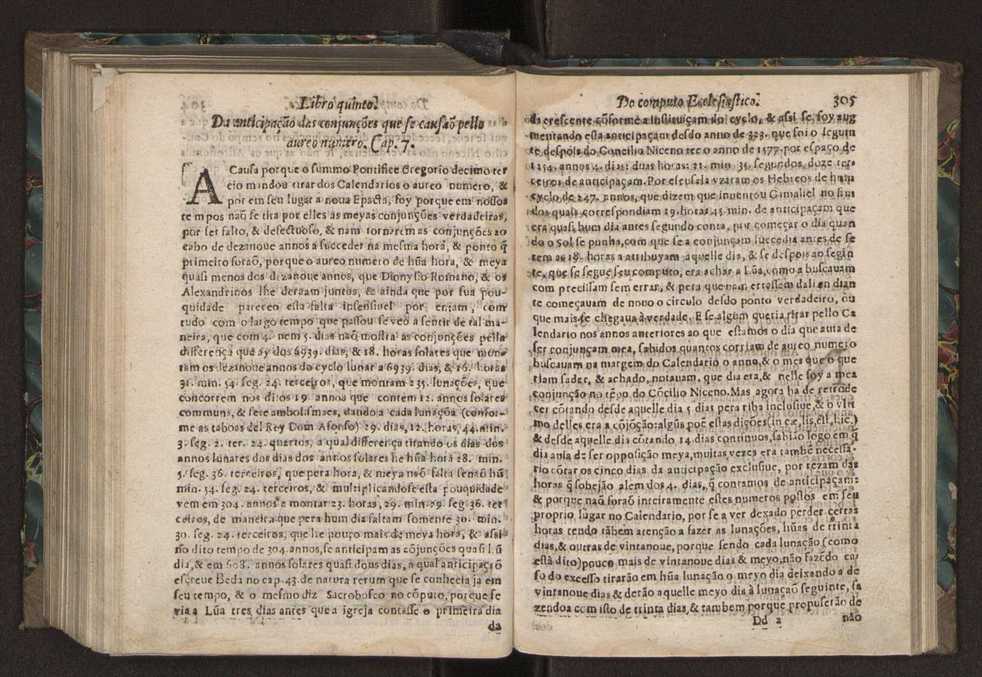 Libro quinto.
Da anticipação das conjunções que se causaõ pello
aureo numero. Cap. 7.
A Causa porque o summo Pontifice Gregorio decimo ter
cio mandou tirar dos Calendarios o aureo numero, &
por em seu lugar a noua Epacta, foy porque em nossos
tempos naõ se tira por elles as meyas conjunções verdadeiras,
por ser falto, & defectuoso, & nam tornarem as conjunções ao
cabo de dezanoue annos a succeder na mesma hora, & ponto q̃
primeiro foraõ, porque o aureo numero de hũa hora, & meya
quasi menos dos dezanoue annos, que Dionysio Romano, & os
Alexandrinos lhe deraam juntos, & ainda que por sua pou-
quidade pareceo esta falta insensiuel por entam, com
tudo com o largo tempo que passou se veo a sentir de tal ma-
neira, que com 4. nem 5. dias naõ mostra as conjunções pella
differença que ay dos 6939. dias, & 18. horas solares que mon-
tam os dezanoue annos do cyclo lunar a 6939. dias, & 16. horas
31. min. 54. seg. 24. terceiros, que montam 235. lunações, que
concorrem nos ditos 19. annos que contem 12. annos solares
communs, & sete ambolismaes, dando a cada lunaçõa (confor-
me as taboas del Rey Dom Afonso) 29. dias, 12. horas, 44. min.
3. seg. 2. ter. 24. quartos, a qual differença tirando os dias dos
annos lunares dos dias dos annos solares he hũa hora 28. min.
5. seg. 36. terceiros, que pera hora, & meya naõ falta senaõ hũ
min. 54. seg. 24. terceiros, & multiplicandose esta pouquidade
vem em 304. annos a montar 23. horas, 29. min. 29. seg. 36. ter
ceiros, de maneira que pera hum dia faltam somente 30. min.
30. seg. 24. terceiros, que he pouco mais de meya hora, & assi
no dito tempo de 304. annos, se anticipam as cõjunções quasi hũ
dia, & em 608. annos solares quasi dous dias, a qual anticipaçõ
escreue Beda no cap. 43. de natura rerum que se conhecia ja em
seu tempo, & o mesmo diz Sacrobosco no cõputo, porque se
via a Lũa tres dias antes que a igreja contasse o primeiro dia
da
Do computo Ecclesiastico. 305
da crescente cõforme a instituiçam do cyclo, & assi se foy aug
mentando esta anticipaçam desdo anno de 323. que foi o seguin
te despois do Concilio Niceno tee o anno de 1577. por espaço de
1254. annos 4. dias: duas horas: 21. min. 35. segundos, doze ter-
ceiros de anticipaçam. Por ese sala vzaram os Hebreos de hum
cyclo de 247. annos, que dizem que inuentou Gamaliel no fim
dos quaes correspondiam 19. horas 45. min. de anticipaçam que
era quasi hum dia antes segundo conta, por começar o dia quan
do o Sol se punha, com que se a conjunçam succedia antes de se
tem as 18. horas a atribuyam aquelle dia, & se despois ao seguin
te, que se segue seu computo, era achar a Lũa, como a buscauam
com precissam sem errar, & pera que nam errassem dali en dian
te começauam de nouo o circulo desdo ponto verdadeiro, ou
que mais se chegaua à verdade. E se algum queria tirar pello Ca
lendario nos annos anteriores ao que estamos o dia que auia de
ser conjunçam mea, sabidos quantos corriam de aureo numero
buscauam na margem do Calendario o anno, & o mes que o que
riam saber, & achado, notauam, que dia era, & nelle foy a mea
conjunção no tẽpo do Cõcilio Niceno. Mas agora ha de retrode
cer cõtando desde aquelle dia 5 dias pera riba inclusiue, & o vlti
mo delles era a cõjõçãõ algũs poẽ estas dições (in cæ, lis, est, hic.)
& desde aquelle dia cõtando 14. dias continuos, sabião logo em q̃
dia auia de ser opposição meya, muitas vezes era tambẽ necessa-
rio cõtar os cinco dias da anticipação exclusiue, por rezam das
horas q̃ sobejão alem dos 4. dias, q̃ contamos de anticipaçam:
& porque naũ foraõ inteiramente estes numeros postos em seu
proprio lugar no Calendario, por se a ver dexado perder certas
horas tendo tãbem atenção a fazer as lunações, hũas de trinta
dias, & outras de vintanoue, porque sendo cada lunação (como
està dito) pouco mais de vintanoue dias & meyo, não fazẽdo ca
so do excesso tirarão em hũa lunação o meyo dia deixando a de
vintanoue dias & derão aquelle meyo dia à lunaçaõ seguinte, fa
zendoa com isto de trinta dias, & tambem porque propuserão de
Dd 2 não